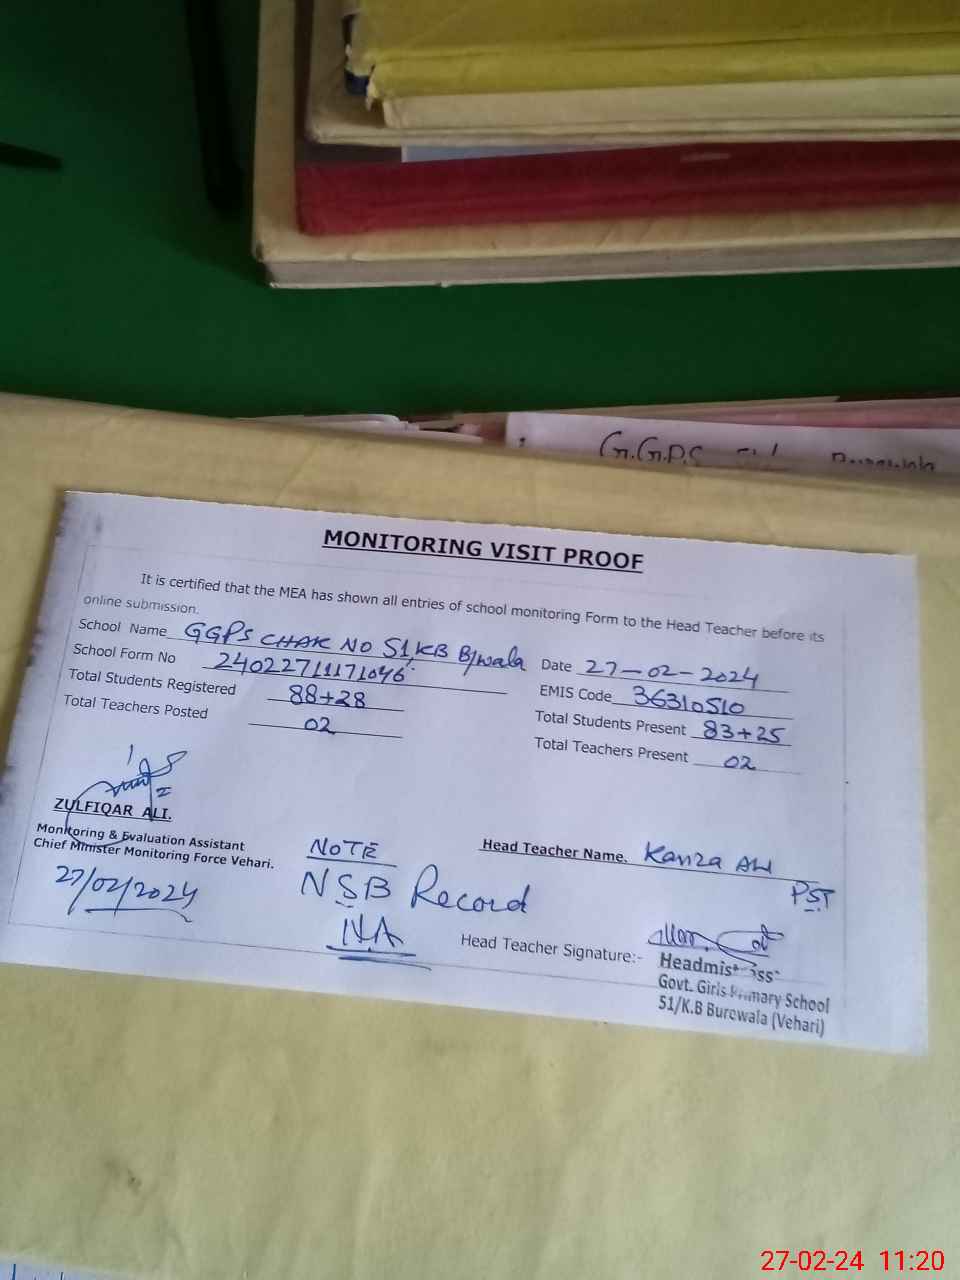 G.G.P.S
MONITORING VISIT PROOF
It is certified that the MEA has shown all entries of school monitoring Form to the Head Teacher before its
online submission.
School Name GGPS CHAK NO 51/KB B/wala
Date 27-02-2024
School Form No 24022711171046
EMIS Code 36310510
Total Students Registered 88+28
Total Students Present 83+25
Total Teachers Posted 02
Total Teachers Present 02
ZULFIQAR ALI.
Monitoring & Evaluation Assistant
Chief Minister Monitoring Force Vehari.
27/02/2024
NOTE
NSB Record
N.A
Head Teacher Name. Kanza Ali
PST
Head Teacher Signature:-
Headmistress
Govt. Girls Primary School
51/K.B Burewala (Vehari)
27-02-24 11:20